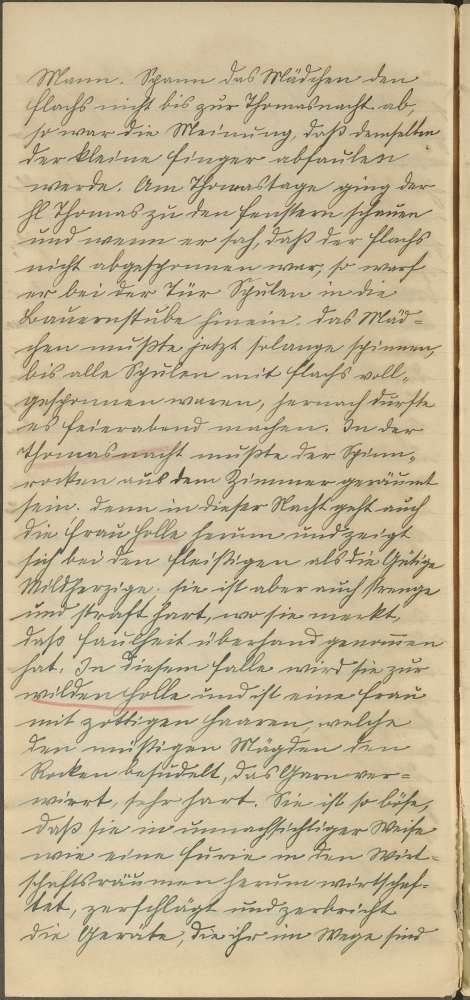 Mann. Spann das Mädchen den
Flachs nicht bis zur Thomasnacht ab,
so war die Meinung, daß demselben
der kleine Finger abfaulen
werde. Am Thomastage ging der
hl Thomas zu den Fenstern schauen
und wenn er sah, daß der Flachs
nicht abgesponnen war, so warf
er bei der Tür Spulen in die
Bauernstube hinein. das Mäd=
chen mußte jetzt solange spinnen,
bis alle Spulen mit Flachs voll-
gesponnen waren, hernach durfte
es Feierabend machen. In der
Thomasnacht mußte der Spinn-
rocken aus dem Zimmer geräumt
sein. denn in dieser Nacht geht auch
die Frau Holle herum und zeigt
sich bei den Fleißigen als die Gütige
Mildherzige. sie ist aber auch strenge
und straft hart, wo sie merkt,
daß Faulheit überhand genommen
hat. In diesem Falle wird sie zur
wilden Holle und ist eine Frau
mit zottigen Haaren, welche
den müßigen Mägden den
Rocken besudelt, das Garn ver=
wirrt, sehr hart. Sie ist so böse,
daß sie in unnachsichtiger Weise
wie eine Furie in den Wirt-
schaftsräumen herum wirtschaf-
tet, zerschlägt und zerbricht
die Geräte, die ihr im Wege sind